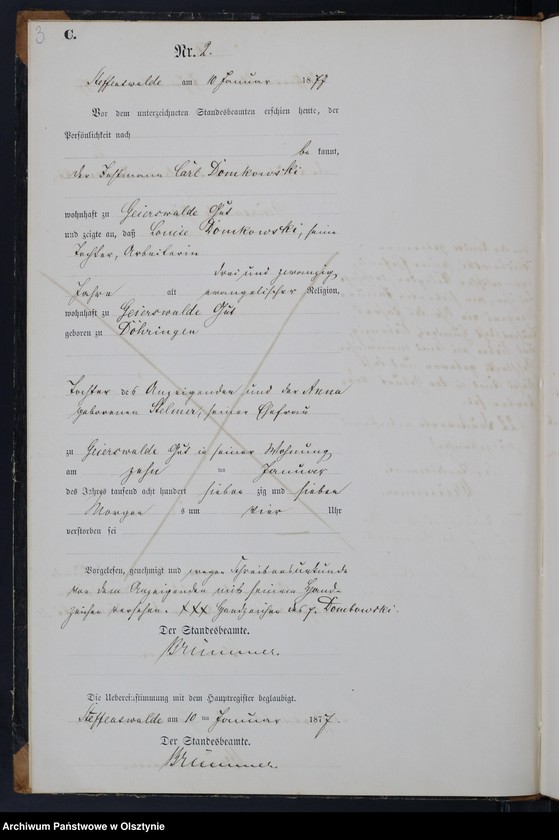 3
C.
Nr. 2.
Steffenswalde am 10 Januar 1877
Vor dem unterzeichneten Standesbeamten erschien heute, der
Persönlichkeit nach
be kannt,
der Carl Domkowski
wohnhaft zu Geierswalde Gut
und zeigte an, daß Louise Domkowski, seine
Tochter, Arbeiterin
drei und zwanzig
Jahre alt evangelischer Religion,
wohnhaft zu Geierswalde Gut
geboren zu Döhringen
Tochter des Anzeigenden und der Anna
geborenen seiner Ehefrau
zu Geierswalde Gut in seiner Wohnung
am zehn ten Januar
des Jahres tausend acht hundert sieben zig und sieben
Morgen s um vier Uhr
verstorben sei
Vorgelesen, genehmigt und wegen Schreibensunkunde
von dem Anzeigenden mit seinem Hand-
zeichen versehen. XXX Handzeichen des p. Dombowski.
Der Standesbeamte.
Brümmer.
Die Uebereinstimmung mit dem Hauptregister beglaubigt.
Steffenswalde am 10 ten Januar 1877.
Der Standesbeamte.
Brümmer.
Archiwum Państwowe w Olsztynie